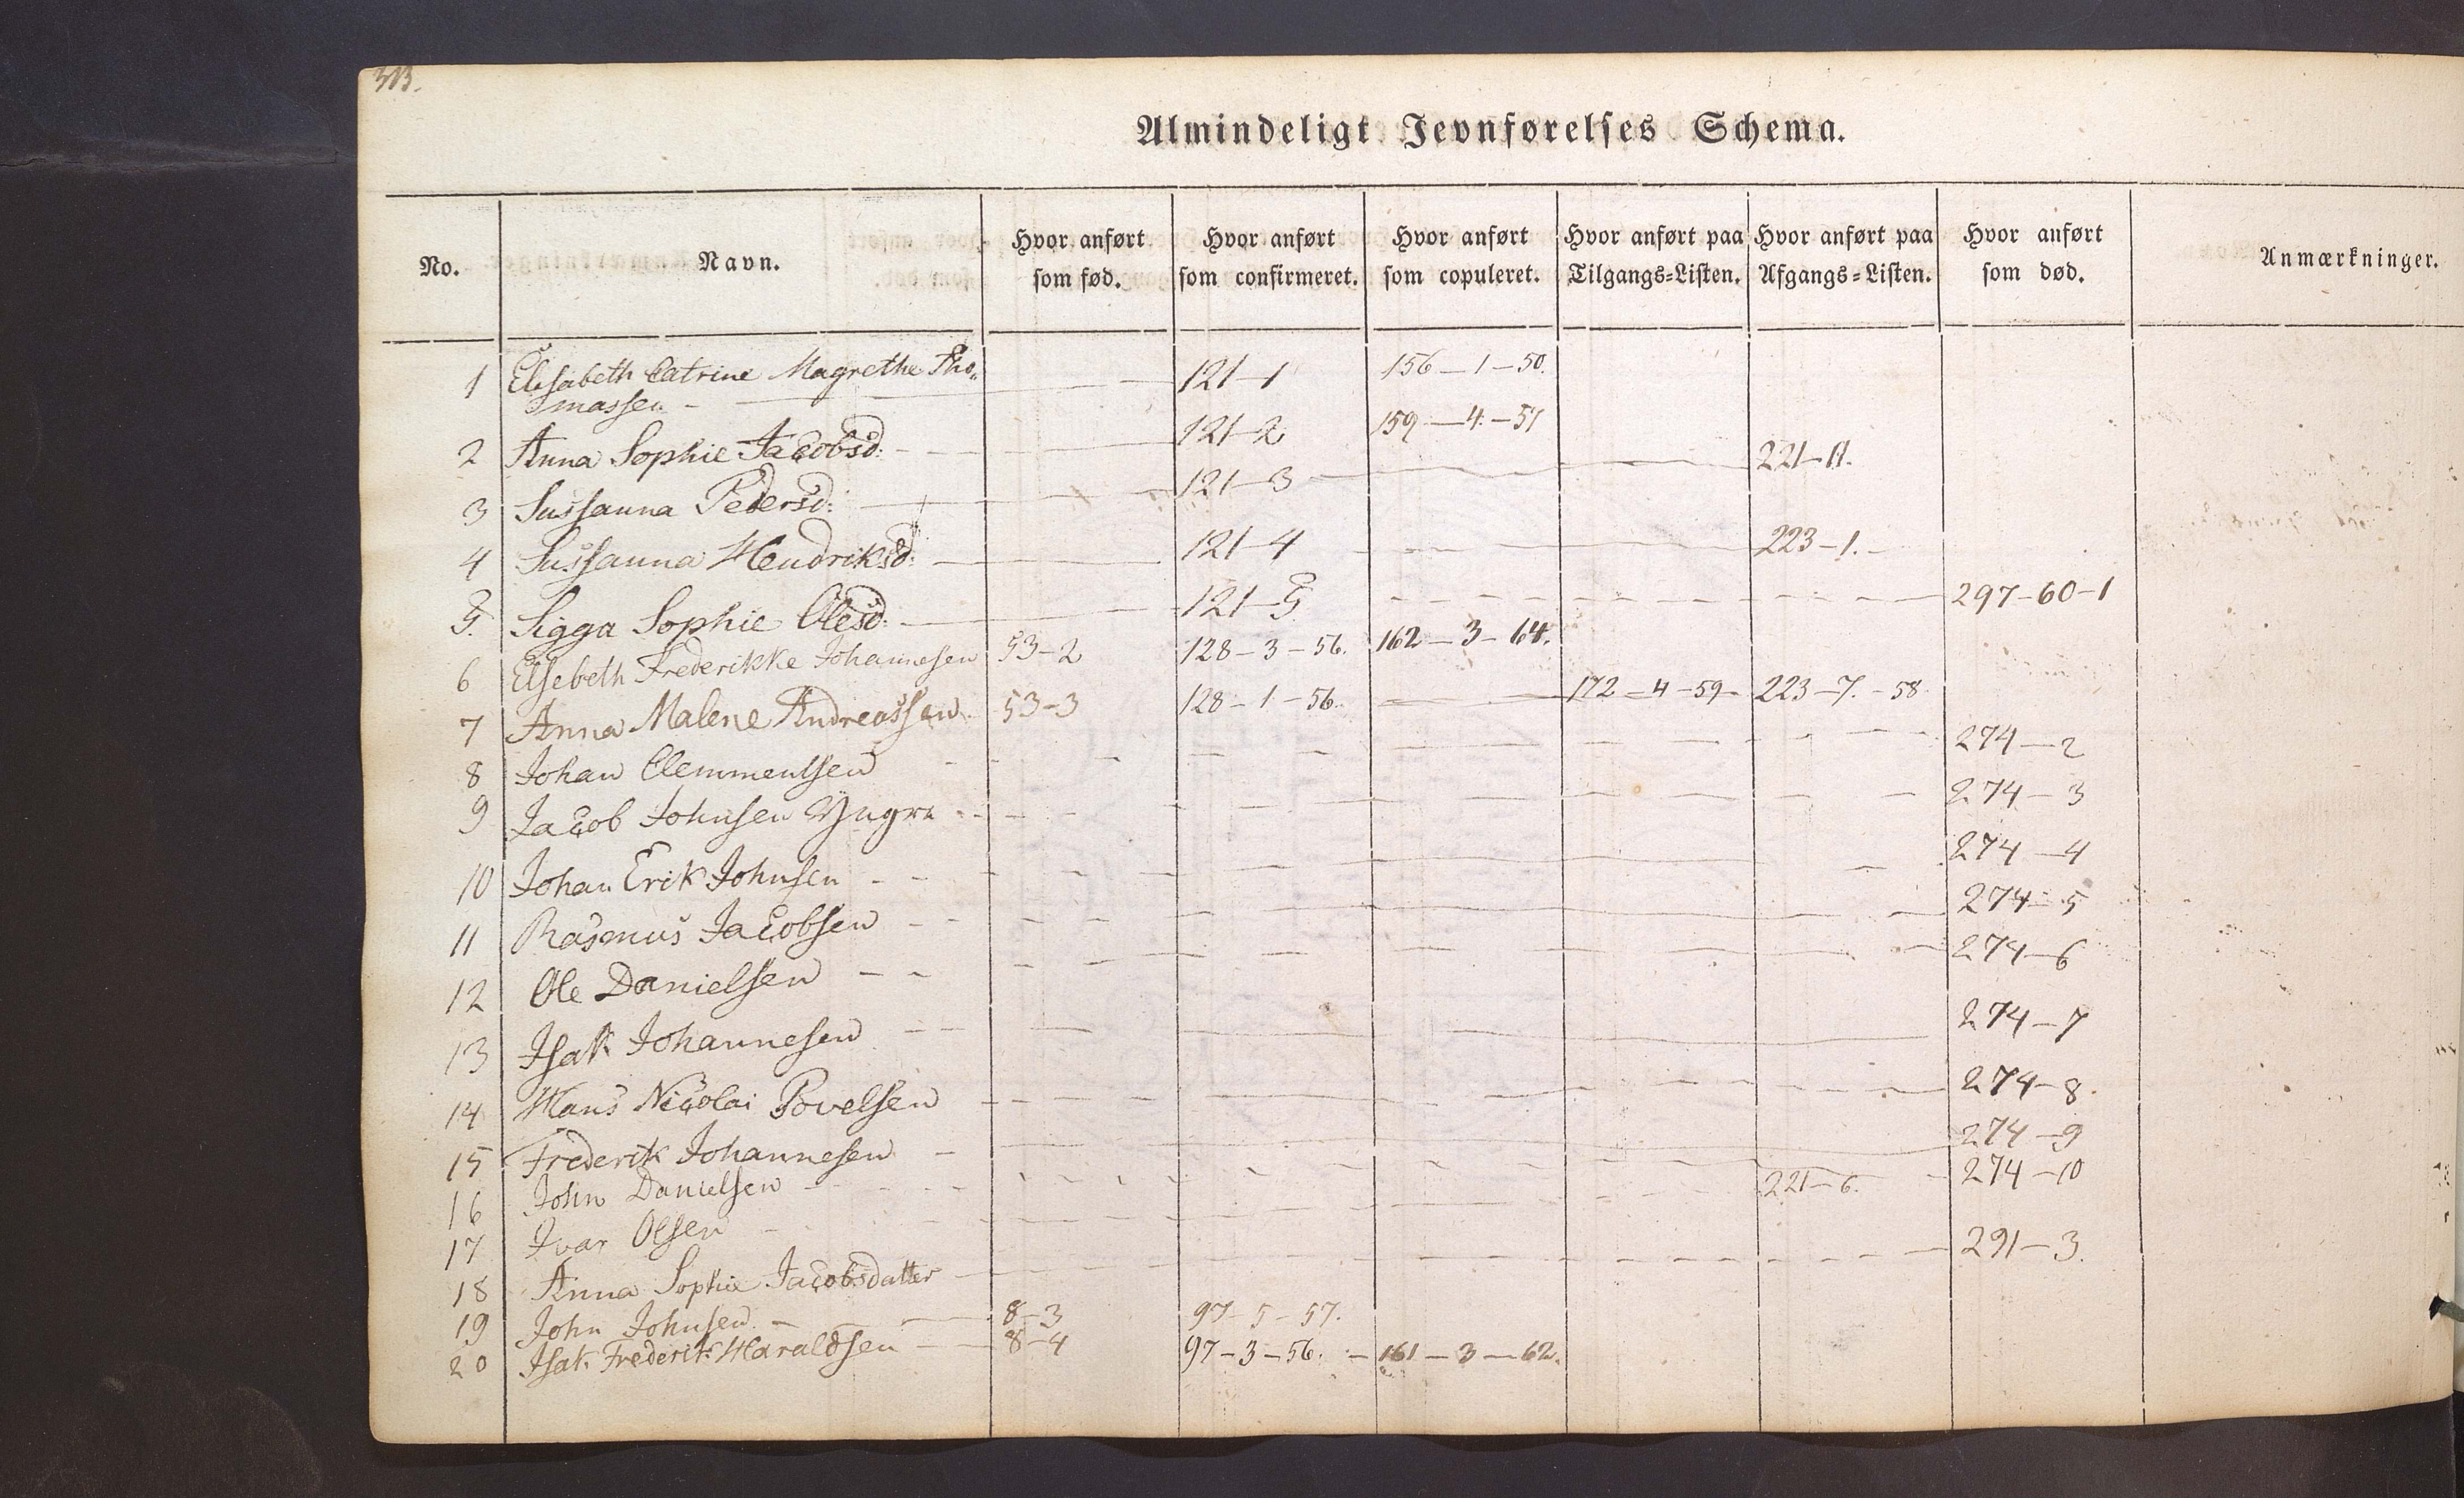 313.
Almindeligt Jevnførelses Schema.
No. Navn. Hvor anført som fød. Hvor anført som confirmeret. Hvor anført som copuleret. Hvor anført paa Tilgangs=Listen. Hvor anført paa Afgangs=Listen. Hvor anført som død. Anmærkninger.
1 Elisabeth Catrine Magrethe Tho„ — 121—1 156—1—50.
massen —
2 Anna Sophie Jacobsd: — 121—2 159—4—57
3 Sussanna Pedersd: — 121—3 — 221—11.
4 Sussanna Hendriksd: — 121—4 — 223—1.
5. Sigga Sophie Olesd: — 121—5. — 297—60—1
6 Elsebeth Frederikke Johannesen 53—2 128—3—56. 162—3—64.
7 Anna Malene Andreassen 53—3 128—1—56. — 172—4—59— 223—7.—58
8 Johan Clemmentsen — 274—2
9 Jacob Johnsen — 274—3
10 Johan Erik Johnsen — 274—4
11 Rasmus Jacobsen — 274—5
12 Ole Danielsen — 274—6
13 Isak Johannesen — 274—7
14 Hans Nicolai Povelsen — 274—8.
15 Frederik Johannesen — 274—9
16 John Danielsen — 274—10
17 Ivar Olsen — 221—6.
18 Anna Sophie Jacobsdatter — 291—3.
19 John Johnsen — 8—3 97—5—57.
20 Isak Frederik Haraldsen — 8—4 97—3—56. — 161—3—62.